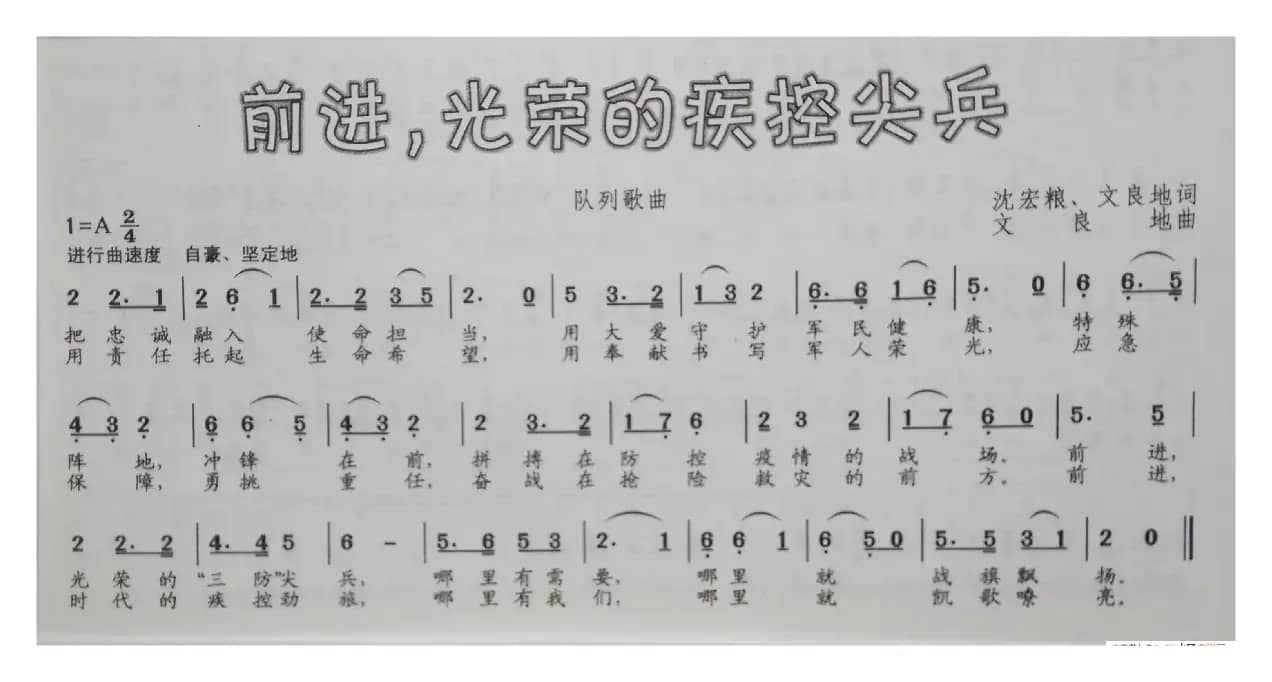 前进,光荣的疾控尖兵
队列歌曲
沈宏粮、文良地词
文良地曲
1=A 2/4
进行曲速度 自豪、坚定地
2 2. 1 | 2 6 1 | 2. 2 3 5 | 2. 0 | 5 3. 2 | 1 3 2 | 6. 6 1 6 | 5. 0 | 6 6. 5 |
把忠诚融入 使命担当, 用大爱守护军民健康, 特殊
用责任托起 生命希望, 用奉献书写军人荣光, 应急
4 3 2 | 6 6 5 | 4 3 2 | 2 3. 2 | 1 7 6 | 2 3 2 | 1 7 6 0 | 5. 5 |
阵地,冲锋在前,拼搏在防控疫情的战场。前进,
保障,勇挑重任,奋战在抢险救灾的前方。前进,
2 2. 2 | 4. 4 5 | 6 - | 5. 6 5 3 | 2. 1 | 6 6 1 | 6 5 0 | 5. 5 3 1 | 2 0 ‖
光荣的“三防”尖兵,哪里有需要,哪里就战旗飘扬。
时代的疾控劲旅,哪里有我们,哪里就凯歌嘹亮。